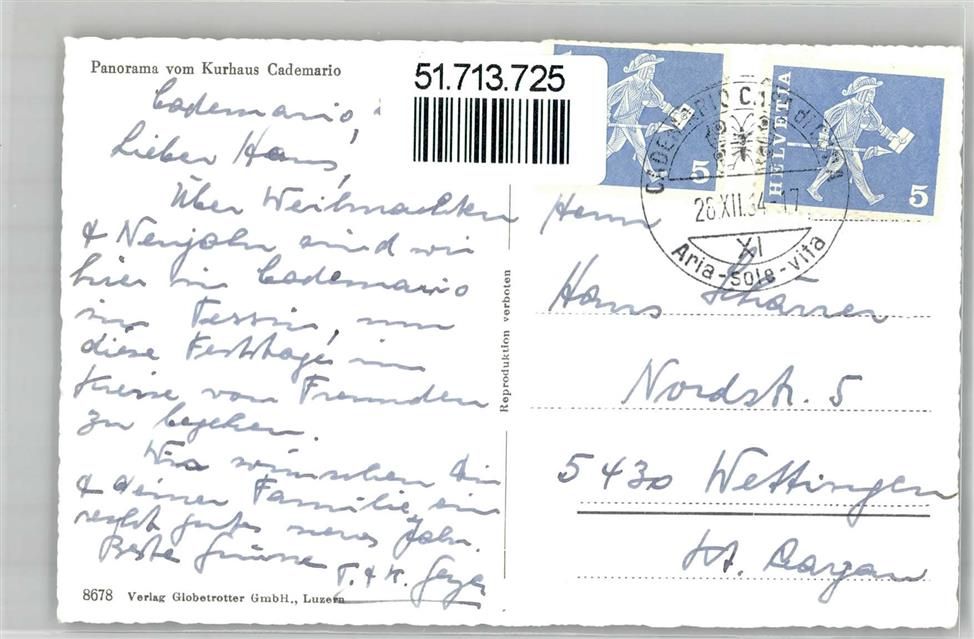 Panorama vom Kurhaus Cademario
51.713.725
Cademario,
Lieber Hans,
Über Weihnachten
& Neujahr sind wir
hier in Cademario
im Tessin, um
diese Festtage im
Kreise von Freunden
zu begehen.
Wir wünschen Dir
& deiner Familie ein
recht gutes neues Jahr.
Beste Grüsse
T. & K.
8678 Verlag Globetrotter GmbH., Luzern
Reproduktion verboten
5
HELVETIA
5
CADEMARIO
28.XII.64-17
XI
Aria-sole-vita
Herrn
Hans Schärrer
Nordstr. 5
5430 Wettingen
Kt. Aargau